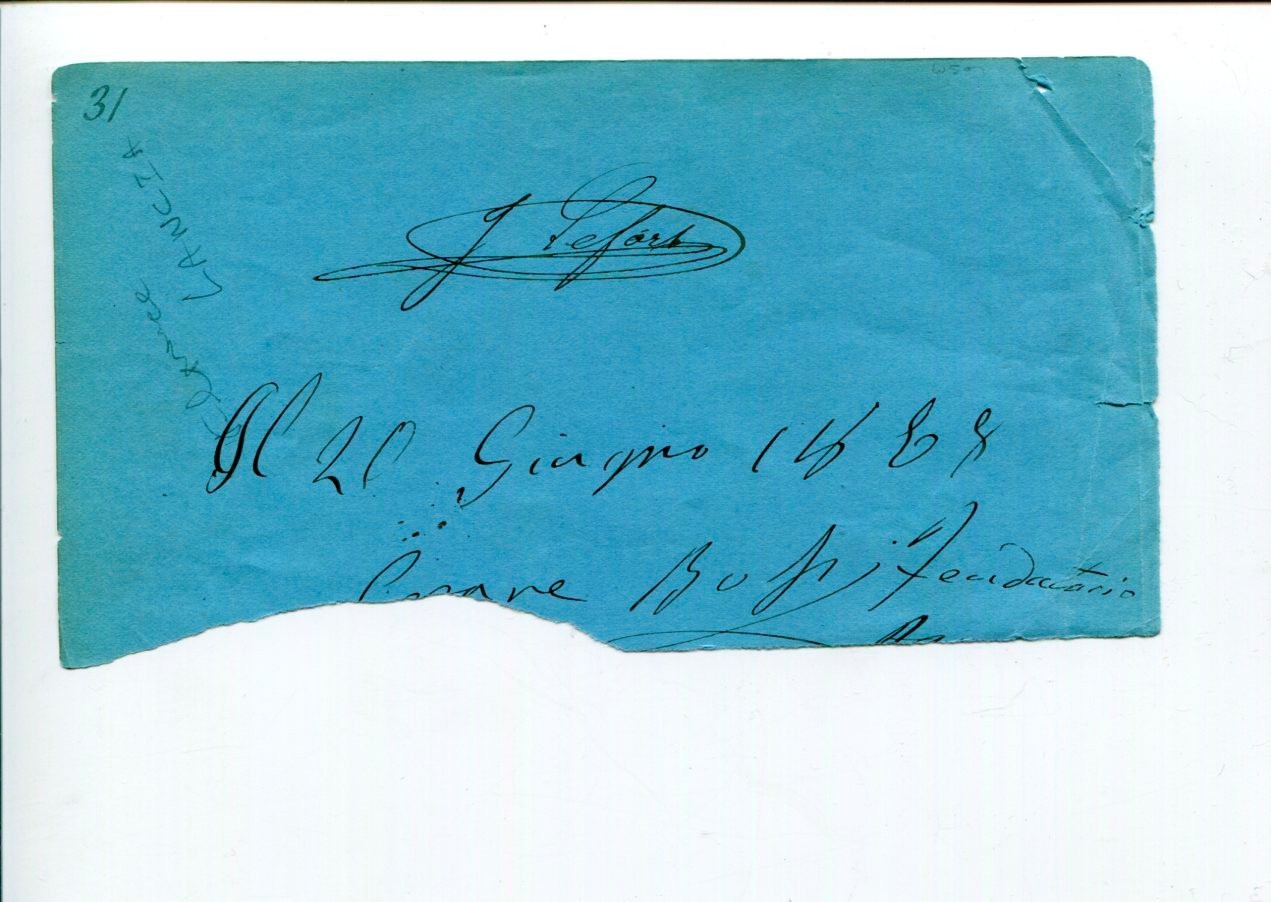 31
LANCIA
J Lefort
Il 20 Giugno 1888
Cesare Bossi feudatario